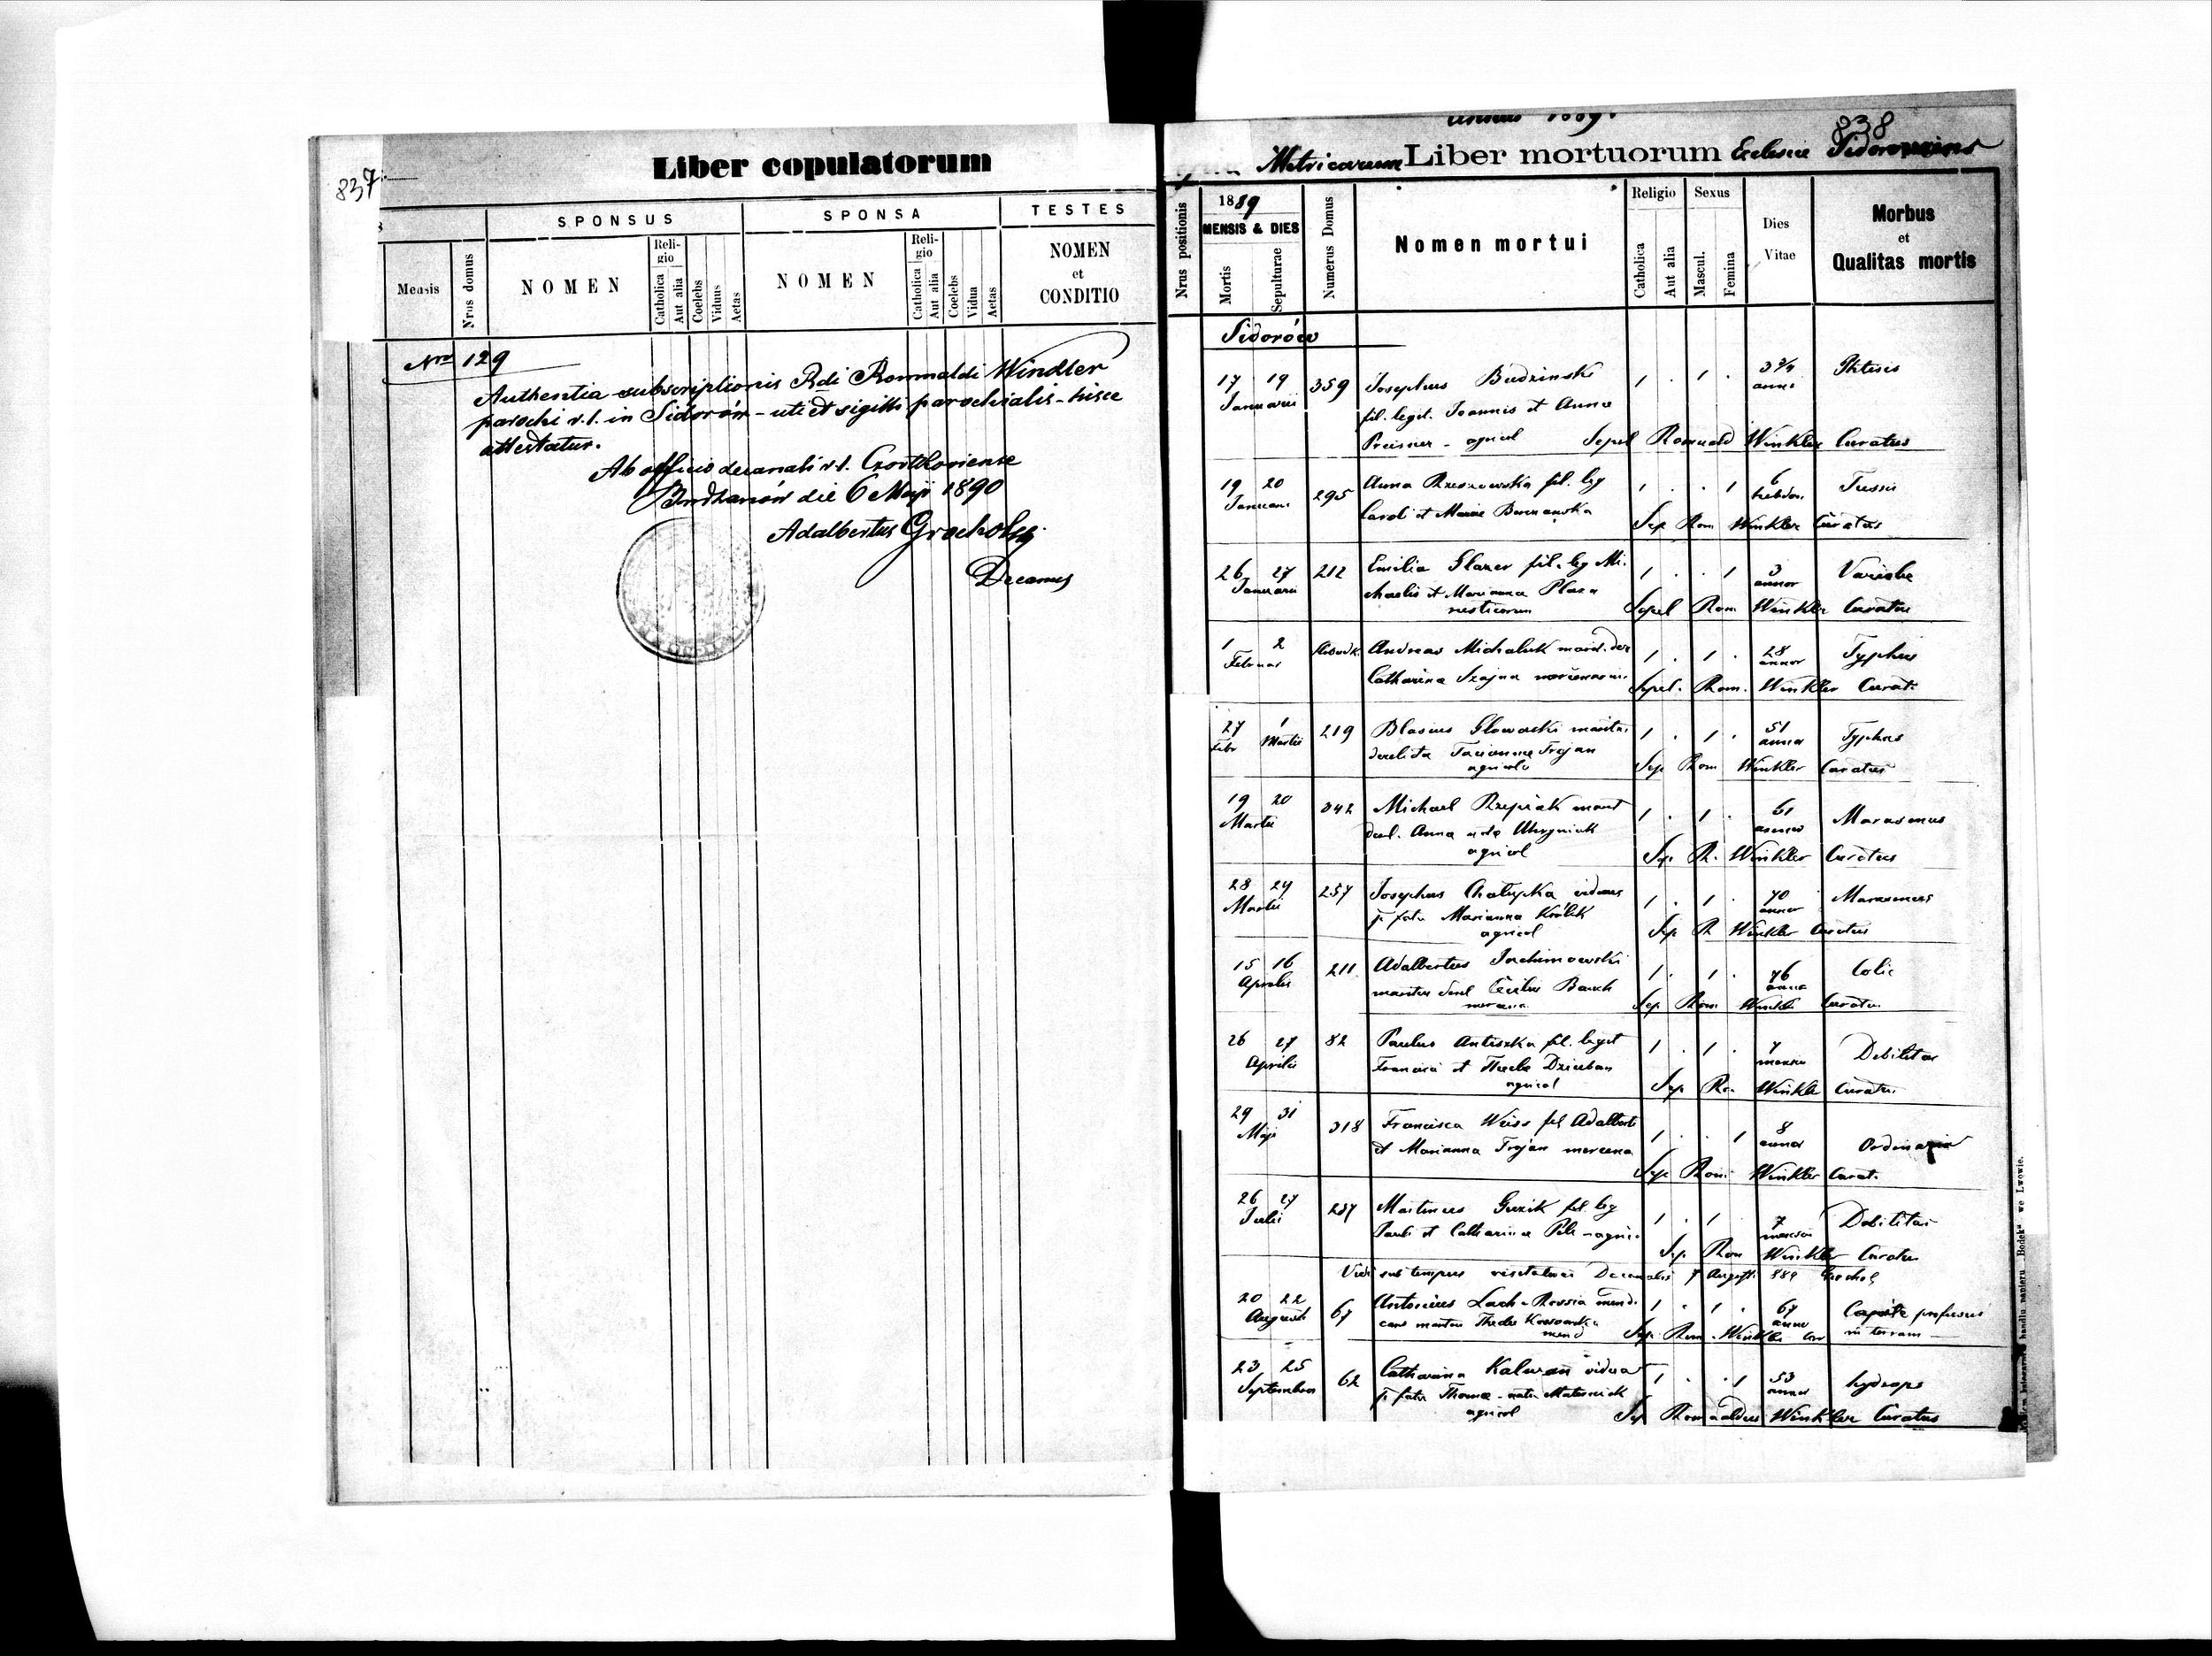 837
Liber copulatorum
SPONSUS
SPONSA
TESTES
Mensis
Nrus domus
NOMEN
Reli-
gio
Catholica
Aut alia
Coelebs
Viduus
Aetas
NOMEN
Reli-
gio
Catholica
Aut alia
Coelebs
Vidua
Aetas
NOMEN
et
CONDITIO
Nro 129
Authentia subscriptionis Rdi Romualdi Windler
parochi r.l. in Sidorów - uti et sigilli parochialis - hisce
attestatur.
Ab officio decanali r.l. Czortkoviense
Budzanów die 6 Maji 1890
Adalbertus Grocholsky
Decanus
Annus 1889.
838
Metricarum Liber mortuorum Ecclesiae
Nrus positionis
1889
MENSIS & DIES
Mortis
Sepulturae
Numerus Domus
Nomen mortui
Religio
Catholica
Aut alia
Sexus
Mascul.
Femina
Dies
Vitae
Morbus
et
Qualitas mortis
Sidorów
17 19 359 Josephus Budzinski 1 . 1 . 3 3/4 Phtisis
Januarii anni
fil. legit. Joannis et Anna
Preisner - agricol Sepel Romuald Winkler Curatus
19 20 295 Anna Rzeszowska fil. leg 1 . . 1 6 Tussis
Januarii hebdom.
Caroli et Mariae Sep Rom Winkler Curatus
26 27 212 Emilia Glazer fil. leg Mi- 1 . . 1 3 Variolae
Januarii annor
chaelis et Marianna Plaza
rusticorum Sepel Rom Winkler Curatus
1 2 Andreas Michaluk marit. der 1 . 1 . 28 Typhus
Februar annor
Catharina Szajna Sepel. Rom. Winkler Curat.
27 1 219 Blasius Glowacki marit. 1 . 1 . 51 Typhus
Febr Martii annor
derelicta Trojan
agricola Sep Rom Winkler Curatus
19 20 342 Michael Rzepiak marit 1 . 1 . 61 Marasmus
Martii annor
derel. Anna nata
agricol Sep. R. Winkler Curatus
28 29 257 Josephus Chalupka viduus 1 . 1 . 70 Marasmus
Martii annor
p. fata Marianna Królik
agricol Sep R Winkler Curatus
15 16 211 Adalbertus Jachimowski 1 . 1 . 76 Colic
Aprilis annor
maritus derel Bauch
Sep Rom Winkl Curatu.
26 27 82 Paulus Antiszka fil. legit 1 . 1 . 7 Debilitas
Aprilis menses
Francisci et Thecla Dziuban
agricol Sep Ro. Winkle Curatu.
29 31 318 Francisca Weiss fil Adalberti 1 . . 1 8 Ordinaria
Maji annor
et Marianna Trojan mercena
Sep Rom Winkler Curat.
26 27 257 Martinus Guzik fil. leg 1 . 1 7 Debilitas
Julii menses
Pauli et Catharina - agric.
Sep. Rom Winkler Curatu
Vidi sub tempus visitationis Decanalis 7 Augusti 889 Grochol
20 22 67 Antonius Lach Rossia mendi- 1 . 1 . 67 Capite profusus
Augusti annor in terram
cans maritus Theclae
mend Sep. Rom. Winkler Cur
23 25 62 Catharina Kalwan vidua 1 . . 1 53 hydrops
Septembris annor
p. fata Thoma - nata
agricol Sep Romualdus Winkler Curatus
we Lwowie.